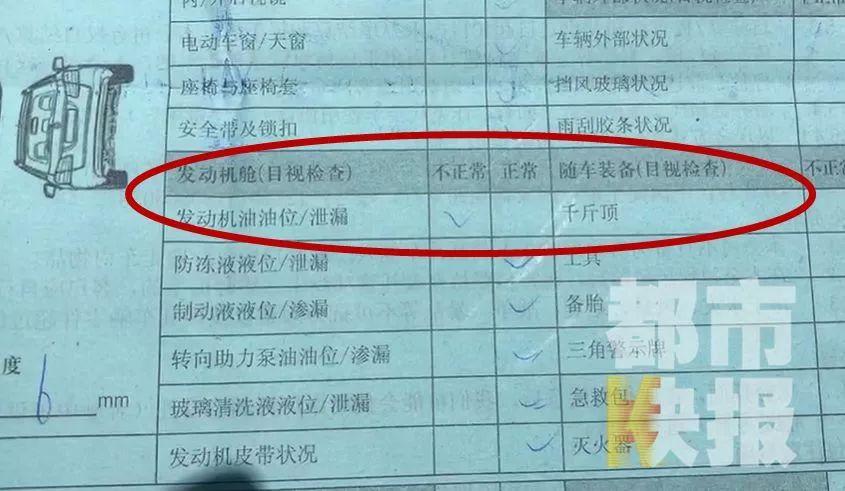 电动车窗/天窗 车辆外部状况
座椅与座椅套 挡风玻璃状况
安全带及锁扣 雨刮胶条状况
发动机舱(目视检查) 不正常 正常 随车装备(目视检查) 不正常
发动机油油位/泄漏 千斤顶
防冻液液位/泄漏 工具
制动液液位/渗漏 备胎
转向助力泵油油位/渗漏 三角警示牌
度
6 mm
玻璃清洗液液位/泄漏 急救包
发动机皮带状况 灭火器
都市
快报